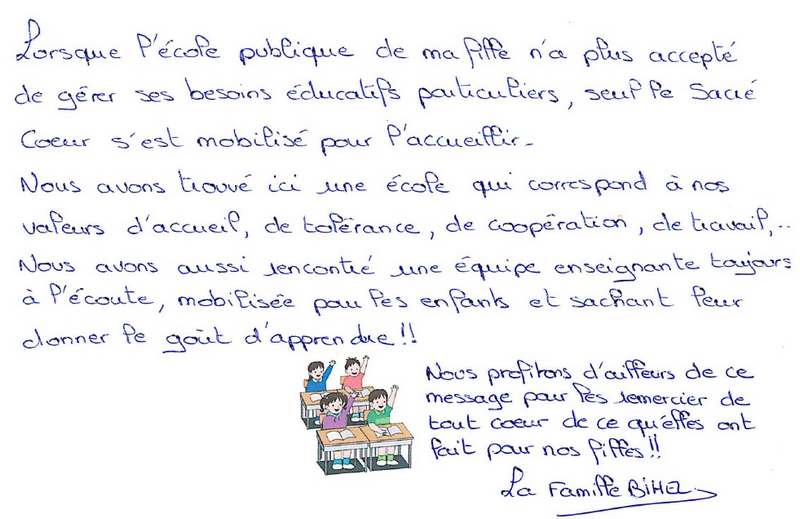 Lorsque l'école publique de ma fille n'a plus accepté
de gérer ses besoins éducatifs particuliers, seul le Sacré
Coeur s'est mobilisé pour l'accueillir.
Nous avons trouvé ici une école qui correspond à nos
valeurs d'accueil, de tolérance, de coopération, de travail,..
Nous avons aussi rencontré une équipe enseignante toujours
à l'écoute, mobilisée pour les enfants et sachant leur
donner le goût d'apprendre!!
Nous profitons d'ailleurs de ce
message pour les remercier de
tout coeur de ce qu'elles ont
fait pour nos filles!!
La Famille BIHEL